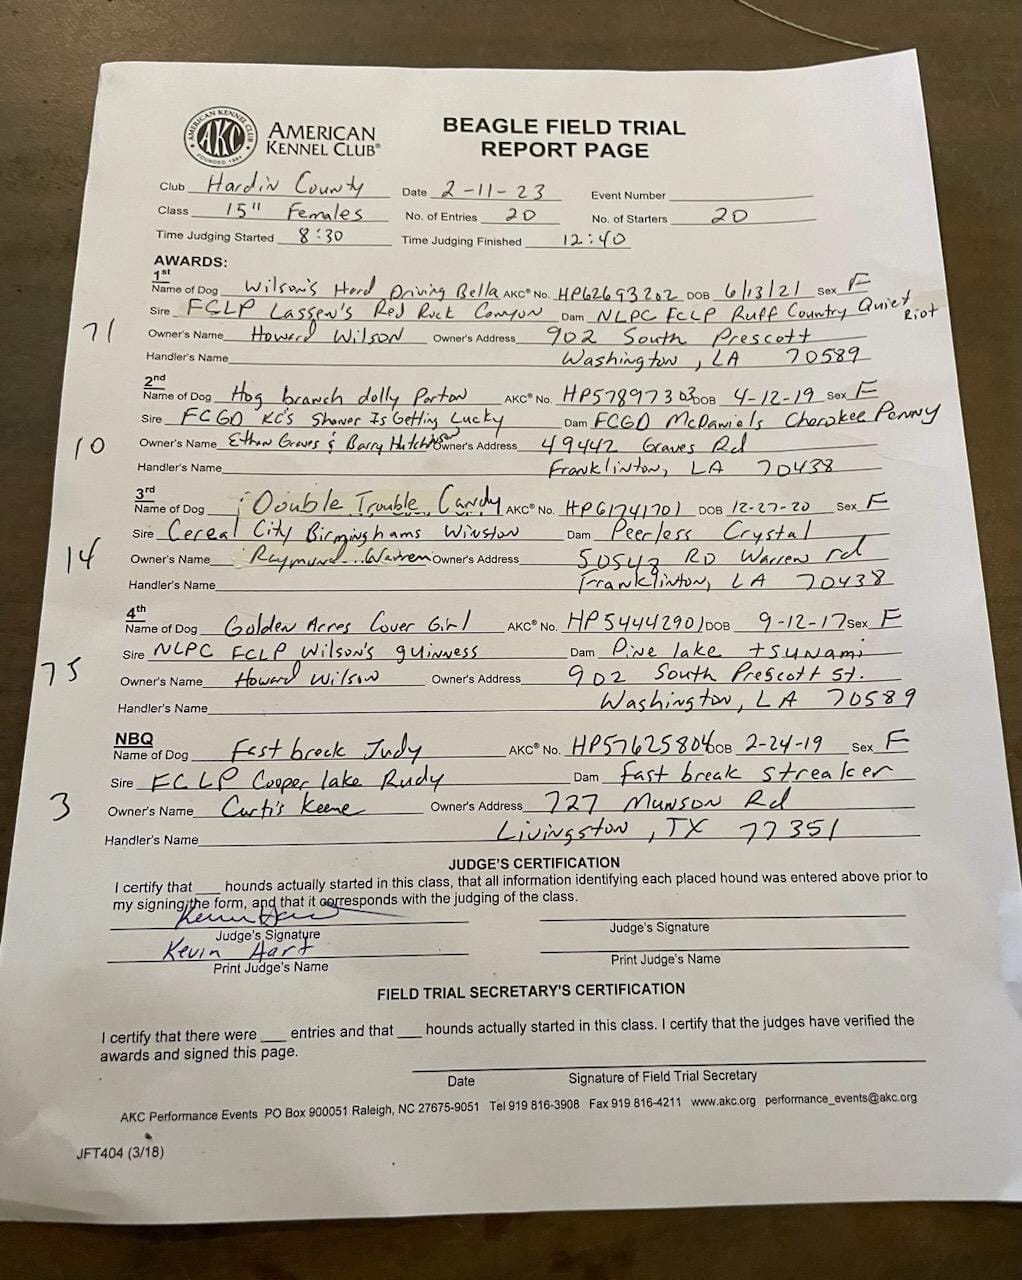 AMERICAN KENNEL CLUB
AKC
FOUNDED 1884
AMERICAN
KENNEL CLUB®
BEAGLE FIELD TRIAL
REPORT PAGE
Club Hardin County Date 2-11-23 Event Number
Class 15" Females No. of Entries 20 No. of Starters 20
Time Judging Started 8:30 Time Judging Finished 12:40
AWARDS:
1st
Name of Dog Wilson's Hard Driving Bella AKC® No. HP62693202 DOB 6/13/21 Sex F
Sire FCLP Lassen's Red Rock Canyon Dam NLPC FCLP Ruff Country Quiet Riot
71 Owner's Name Howard Wilson Owner's Address 902 South Prescott
Handler's Name Washington, LA 70589
2nd
Name of Dog Hog branch dolly Parton AKC® No. HP57897303 DOB 4-12-19 Sex F
Sire FCGD KC's Shaner Is Getting Lucky Dam FCGD McDaniels Cherokee Penny
10 Owner's Name Ethan Graves & Barry Hutchinson Owner's Address 49442 Graves Rd
Handler's Name Franklinton, LA 70438
3rd
Name of Dog Double Trouble Candy AKC® No. HP61741701 DOB 12-27-20 Sex F
Sire Cereal City Birminghams Winston Dam Peerless Crystal
14 Owner's Name Raymund Warren Owner's Address 50543 RD Warren rd
Handler's Name Franklinton, LA 70438
4th
Name of Dog Golden Acres Cover Girl AKC® No. HP54442901 DOB 9-12-17 Sex F
Sire NLPC FCLP Wilson's guinness Dam Pine lake tsunami
75 Owner's Name Howard Wilson Owner's Address 902 South Prescott St.
Handler's Name Washington, LA 70589
NBQ
Name of Dog Fast break Judy AKC® No. HP57625804 DOB 2-24-19 Sex F
Sire FCLP Cooper lake Rudy Dam fast break streaker
3 Owner's Name Curtis Keene Owner's Address 727 Munson Rd
Handler's Name Livingston, TX 77351
JUDGE'S CERTIFICATION
I certify that ___ hounds actually started in this class, that all information identifying each placed hound was entered above prior to
my signing the form, and that it corresponds with the judging of the class.
Judge's Signature Judge's Signature
Kevin Hart
Print Judge's Name Print Judge's Name
FIELD TRIAL SECRETARY'S CERTIFICATION
I certify that there were ___ entries and that ___ hounds actually started in this class. I certify that the judges have verified the
awards and signed this page.
Date Signature of Field Trial Secretary
AKC Performance Events PO Box 900051 Raleigh, NC 27675-9051 Tel 919 816-3908 Fax 919 816-4211 www.akc.org performance_events@akc.org
JFT404 (3/18)